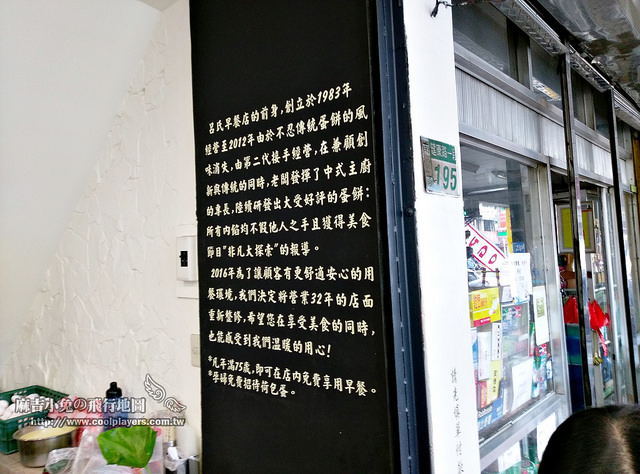 呂氏早餐店的前身,創立於1983年
經營至2012年由於不忍傳統蛋餅的風
味消失,由第二代接手經營,在兼顧創
新與傳統的同時,老闆發揮了中式主廚
的專長,陸續研發出大受好評的蛋餅;
所有內餡均不假他人之手且獲得美食
節目"非凡大探索"的報導。
2016年為了讓顧客有更舒適安心的用
餐環境,我們決定將營業32年的店面
重新整修,希望您在享受美食的同時,
也能感受到我們溫暖的用心!
*凡年滿75歲,即可在店內免費享用早餐。
*孕婦免費招待荷包蛋。
195
麻吉小兔の飛行地圖
http://www.coolplayers.com.tw